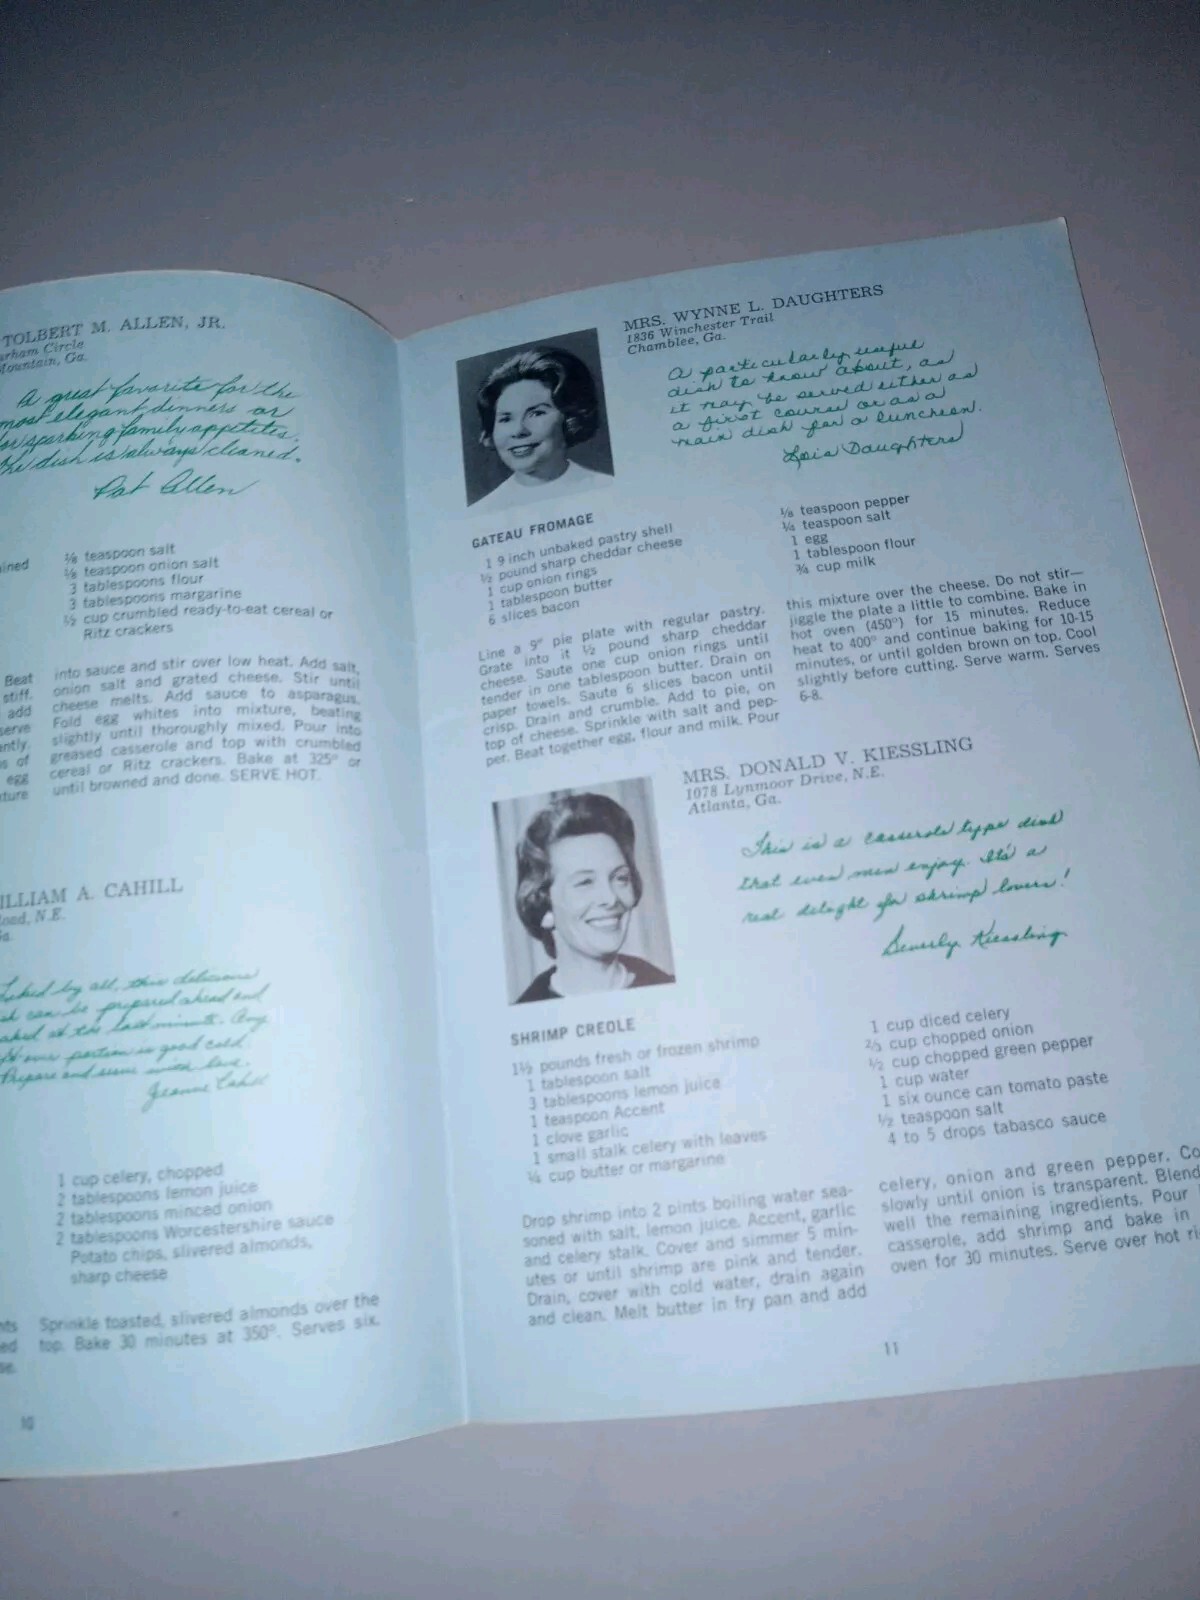 TOLBERT M. ALLEN, JR.
Circle
Mountain, Ga.
A great favorite for the
most elegant dinners or
for sparking family appetites.
The dish is always cleaned.
Pat Allen
⅛ teaspoon salt
⅛ teaspoon onion salt
3 tablespoons flour
3 tablespoons margarine
½ cup crumbled ready-to-eat cereal or
Ritz crackers
Beat
stiff.
add
serve
of
egg
into sauce and stir over low heat. Add salt,
onion salt and grated cheese. Stir until
cheese melts. Add sauce to asparagus.
Fold egg whites into mixture, beating
slightly until thoroughly mixed. Pour into
greased casserole and top with crumbled
cereal or Ritz crackers. Bake at 325° or
until browned and done. SERVE HOT.
ILLIAM A. CAHILL
oad, N.E.
Liked by all, this delicious
can be prepared ahead and
at the last minute. Any
portion is good cold.
Prepare and serve with love.
Jeanne Cahill
1 cup celery, chopped
2 tablespoons lemon juice
2 tablespoons minced onion
2 tablespoons Worcestershire sauce
Potato chips, slivered almonds,
sharp cheese
Sprinkle toasted, slivered almonds over the
top. Bake 30 minutes at 350°. Serves six.
10
MRS. WYNNE L. DAUGHTERS
1836 Winchester Trail
Chamblee, Ga.
A particularly useful
dish to know about, as
it may be served either as
a first course or as a
main dish for a luncheon.
Lois Daughters
GATEAU FROMAGE
1 9 inch unbaked pastry shell
½ pound sharp cheddar cheese
1 cup onion rings
1 tablespoon butter
6 slices bacon
⅛ teaspoon pepper
¼ teaspoon salt
1 egg
1 tablespoon flour
¾ cup milk
Line a 9" pie plate with regular pastry.
Grate into it ½ pound sharp cheddar
cheese. Saute one cup onion rings until
tender in one tablespoon butter. Drain on
paper towels. Saute 6 slices bacon until
crisp. Drain and crumble. Add to pie, on
top of cheese. Sprinkle with salt and pep-
per. Beat together egg, flour and milk. Pour
this mixture over the cheese. Do not stir—
jiggle the plate a little to combine. Bake in
hot oven (450°) for 15 minutes. Reduce
heat to 400° and continue baking for 10-15
minutes, or until golden brown on top. Cool
slightly before cutting. Serve warm. Serves
6-8.
MRS. DONALD V. KIESSLING
1078 Lynmoor Drive, N.E.
Atlanta, Ga.
This is a casserole type dish
that even men enjoy. It's a
real delight for shrimp lovers!
Beverly Kiessling
SHRIMP CREOLE
1½ pounds fresh or frozen shrimp
1 tablespoon salt
3 tablespoons lemon juice
1 teaspoon Accent
1 clove garlic
1 small stalk celery with leaves
¼ cup butter or margarine
1 cup diced celery
⅔ cup chopped onion
½ cup chopped green pepper
1 cup water
1 six ounce can tomato paste
½ teaspoon salt
4 to 5 drops tabasco sauce
Drop shrimp into 2 pints boiling water sea-
soned with salt, lemon juice. Accent, garlic
and celery stalk. Cover and simmer 5 min-
utes or until shrimp are pink and tender.
Drain, cover with cold water, drain again
and clean. Melt butter in fry pan and add
celery, onion and green pepper. Co
slowly until onion is transparent. Blend
well the remaining ingredients. Pour
casserole, add shrimp and bake in
oven for 30 minutes. Serve over hot ri
11